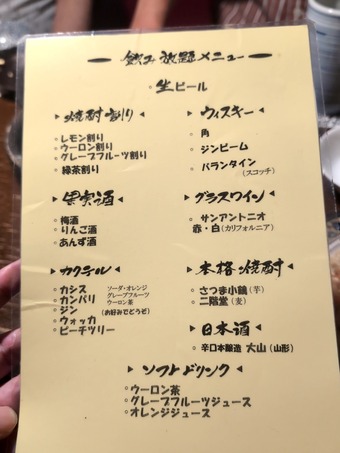 飲み放題メニュー
◦生ビール
▸焼酎割り◂
◦レモン割り
◦ウーロン割り
◦グレープフルーツ割り
◦緑茶割り
▸果実酒◂
◦梅酒
◦りんご酒
◦あんず酒
▸カクテル◂
◦カシス ソーダ・オレンジ
◦カンパリ グレープフルーツ
◦ジン ウーロン茶
◦ウォッカ (お好みでどうぞ)
◦ピーチツリー
▸ウィスキー◂
◦角
◦ジンビーム
◦バランタイン
(スコッチ)
▸グラスワイン◂
◦サンアントニオ
赤・白(カリフォルニア)
▸本格・焼酎◂
◦さつま小鶴(芋)
◦二階堂(麦)
▸日本酒◂
◦辛口本醸造 大山(山形)
▸ソフトドリンク◂
◦ウーロン茶
◦グレープフルーツジュース
◦オレンジジュース